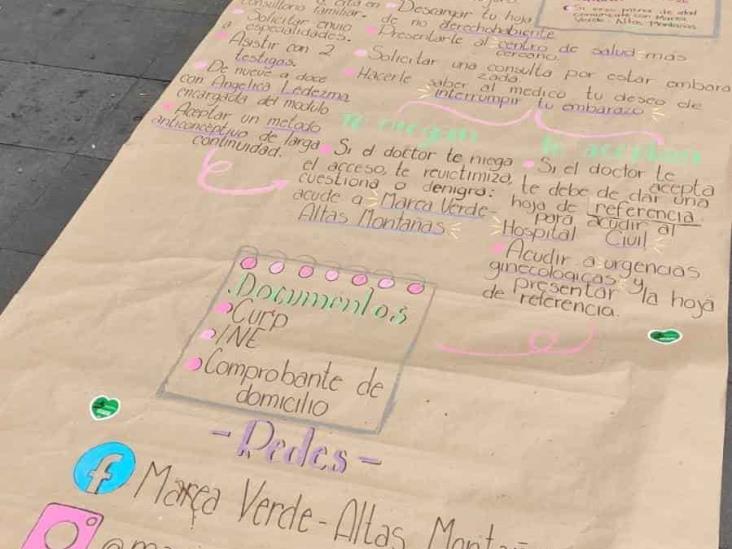 consultorio familiar.
Solicitar envio
a especialidades.
Asistir con 2
testigos.
De nueve a doce
con Angelica Ledezma
encargada del modulo
Aceptar un metodo
anticonceptivo de larga
continuidad.
Descargar tu hoja
de no derechohabiente
Presentarte al centro de salud mas
cercano.
Solicitar una consulta por estar embara
zada.
Hacerle saber al medico tu deseo de
interrumpir tu embarazo
Si eres menor de edad
comunicate con Marea
Verde - Altas Montañas
Te niegan
Si el doctor te niega
el acceso, te revictimiza,
cuestiona o denigra:
acude a Marea Verde -
Altas Montañas
Te aceptan
Si el doctor te acepta
te debe de dar una
hoja de referencia
para acudir al
Hospital Civil
Acudir a urgencias
ginecologicas y
presentar la hoja
de referencia.
Documentos
Curp
INE
Comprobante de
domicilio
- Redes -
f Marea Verde - Altas